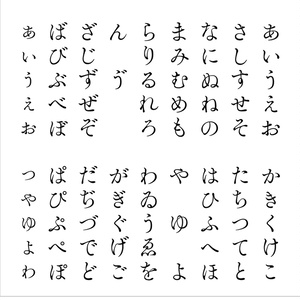 あいうえお
さしすせそ
なにぬねの
まみむめも
らりるれろ
ん ゔ
ざじずぜぞ
ばびぶべぼ
ぁぃぅぇぉ
かきくけこ
たちつてと
はひふへほ
や ゆ よ
わゐうゑを
がぎぐげご
だぢづでど
ぱぴぷぺぽ
っゃゅょゎ